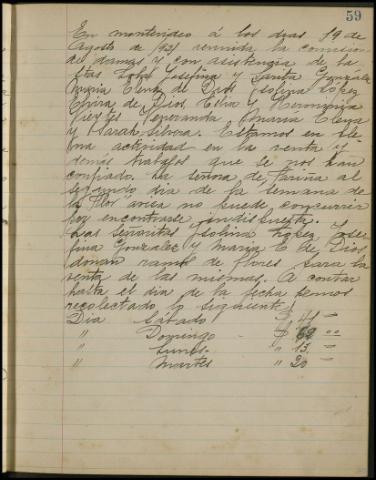 59
En montevideo á los dias 19 de
Agosto de 1931 reunida la comision
de damas y con asistencia de la
stas Josefina y Sarita Gonzalez
Maria Elena de Dios Isolina Lopez
Elvira de Dios, Elsa y Geronima
Fuentes Esperanda Maria Elena
y Sarah Silvera. Estamos en ple
na actividad en la venta y
demás trabajos que se nos han
confiado. La señora de Fariña al
segundo dia de la semana de
la Flor avisa no puede concurrir
por encontrarse indispuesta.
Las señoritas Isolina Lopez Jose
fina Gonzalez y Maria E de Dios
donan ramos de flores para la
venta de las mismas. A contar
hasta el dia de la fecha hemos
recolectado lo siguiente
Dia Sábado $ 41 —
" Domingo - $ 62 ""
" Lunes - " 15 —
" Martes " 20 —